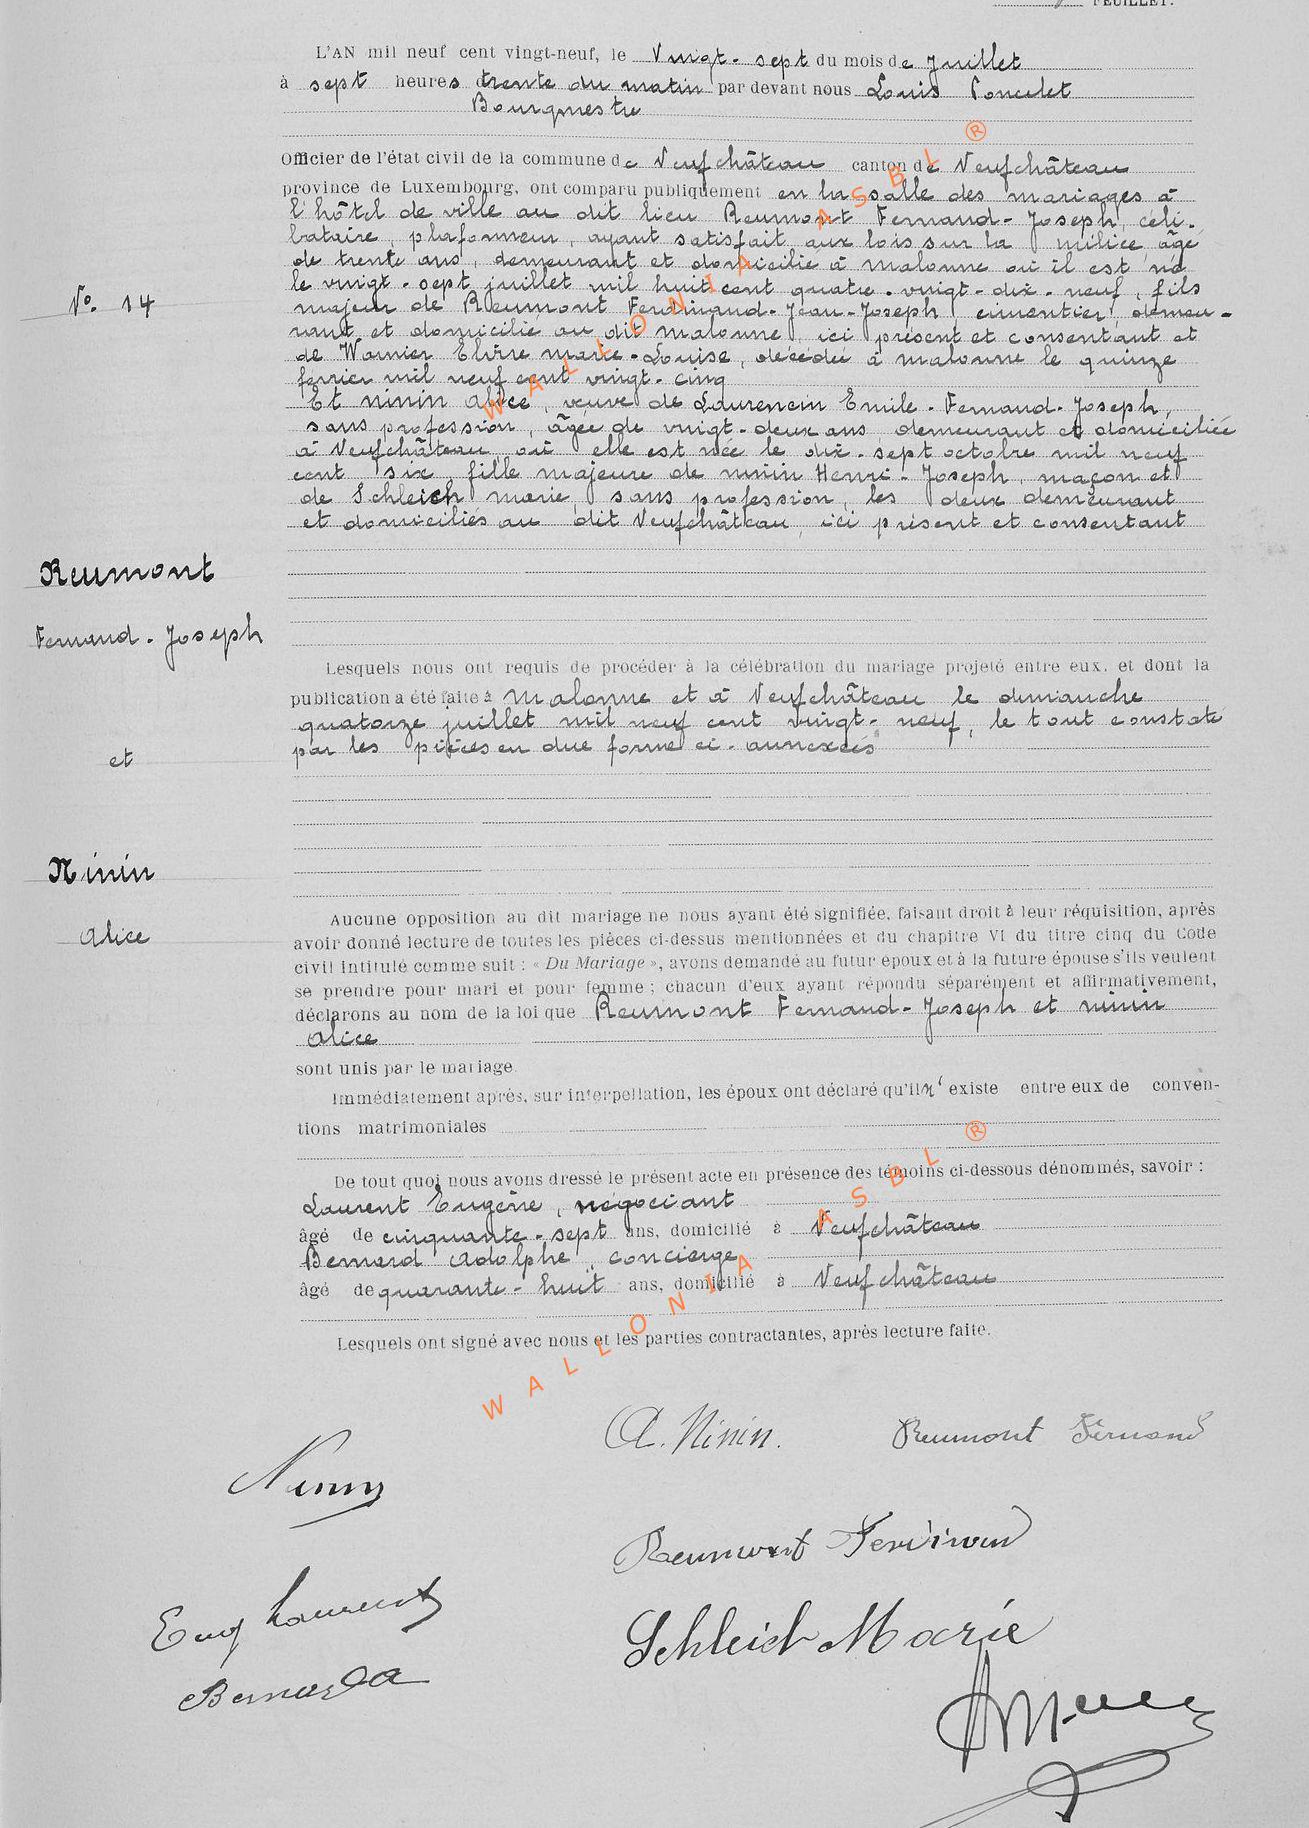 FEUILLET.
L'AN mil neuf cent vingt-neuf, le Vingt-sept du mois de Juillet
à sept heures trente du matin par devant nous Louis Poncelet
Bourgmestre
Officier de l'état civil de la commune de Neufchâteau canton de Neufchâteau
province de Luxembourg, ont comparu publiquement en la salle des mariages à
l'hôtel de ville au dit lieu Reumont Fernand-Joseph, céli-
bataire, plafonneur, ayant satisfait aux lois sur la milice, âgé
de trente ans, demeurant et domicilié à Malonne où il est né
le vingt-sept juillet mil huit cent quatre-vingt-dix-neuf, fils
majeur de Reumont Ferdinand-Jean-Joseph, cimentier, demeu-
rant et domicilié au dit Malonne, ici présent et consentant et
de Warnier Elvire Marie-Louise, décédée à Malonne le quinze
février mil neuf cent vingt-cinq
Et Ninin Alice, veuve de Laurencin Emile-Fernand-Joseph,
sans profession, âgée de vingt-deux ans, demeurant et domiciliée
à Neufchâteau où elle est née le dix-sept octobre mil neuf
cent six, fille majeure de Ninin Henri-Joseph, maçon et
de Schleich Marie, sans profession, les deux demeurant
et domiciliés au dit Neufchâteau, ici présent et consentant
N° 14
Reumont
Fernand-Joseph
et
Ninin
Alice
Lesquels nous ont requis de procéder à la célébration du mariage projeté entre eux, et dont la
publication a été faite à Malonne et à Neufchâteau le dimanche
quatorze juillet mil neuf cent vingt-neuf, le tout constaté
par les pièces en due forme ci-annexées
Aucune opposition au dit mariage ne nous ayant été signifiée, faisant droit à leur réquisition, après
avoir donné lecture de toutes les pièces ci-dessus mentionnées et du chapitre VI du titre cinq du Code
civil intitulé comme suit : « Du Mariage », avons demandé au futur époux et à la future épouse s'ils veulent
se prendre pour mari et pour femme ; chacun d'eux ayant répondu séparément et affirmativement,
déclarons au nom de la loi que Reumont Fernand-Joseph et Ninin
Alice
sont unis par le mariage.
Immédiatement après, sur interpellation, les époux ont déclaré qu'il n'existe entre eux de conven-
tions matrimoniales
De tout quoi nous avons dressé le présent acte en présence des témoins ci-dessous dénommés, savoir :
Laurent Eugène, négociant
âgé de cinquante-sept ans, domicilié à Neufchâteau
Bernard Adolphe, concierge
âgé de quarante-huit ans, domicilié à Neufchâteau
Lesquels ont signé avec nous et les parties contractantes, après lecture faite.
A. Ninin. Reumont Fernand
Ninin
Reumont Ferdinand
Eug Laurent
Schleich Marie
Bernard A
WALLONIA ASBL ®
WALLONIA ASBL ®